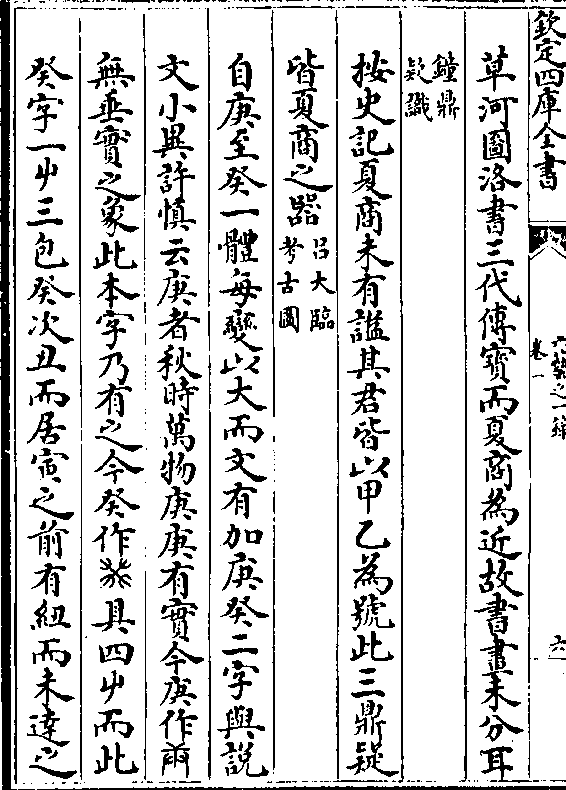 欽定四庫全書
六藝之一錄
卷一
六
草河圖洛書三代傳寶而夏商為近故書畫未分耳
鐘鼎
欵識
按史記夏商未有諡其君皆以甲乙為號此三鼎疑
皆夏商之器呂大臨
考古圖
自庚至癸一體每變以大而文有加庚癸二字與說
文小異許慎云庚者秋時萬物庚庚有實今庚作
無垂實之象此本字乃有之今癸作具四屮而此
癸字一屮三包癸次丑而居寅之前有紐而未達之